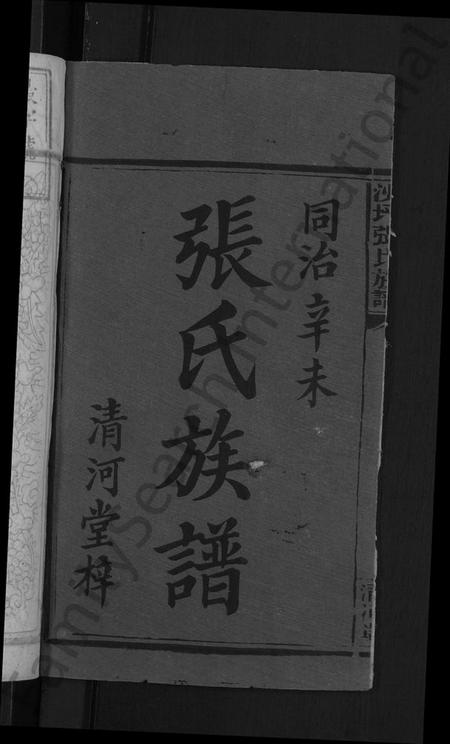 同治辛未
張氏族譜
清河堂梓
沙坪張氏族譜
清河堂
familysearch international